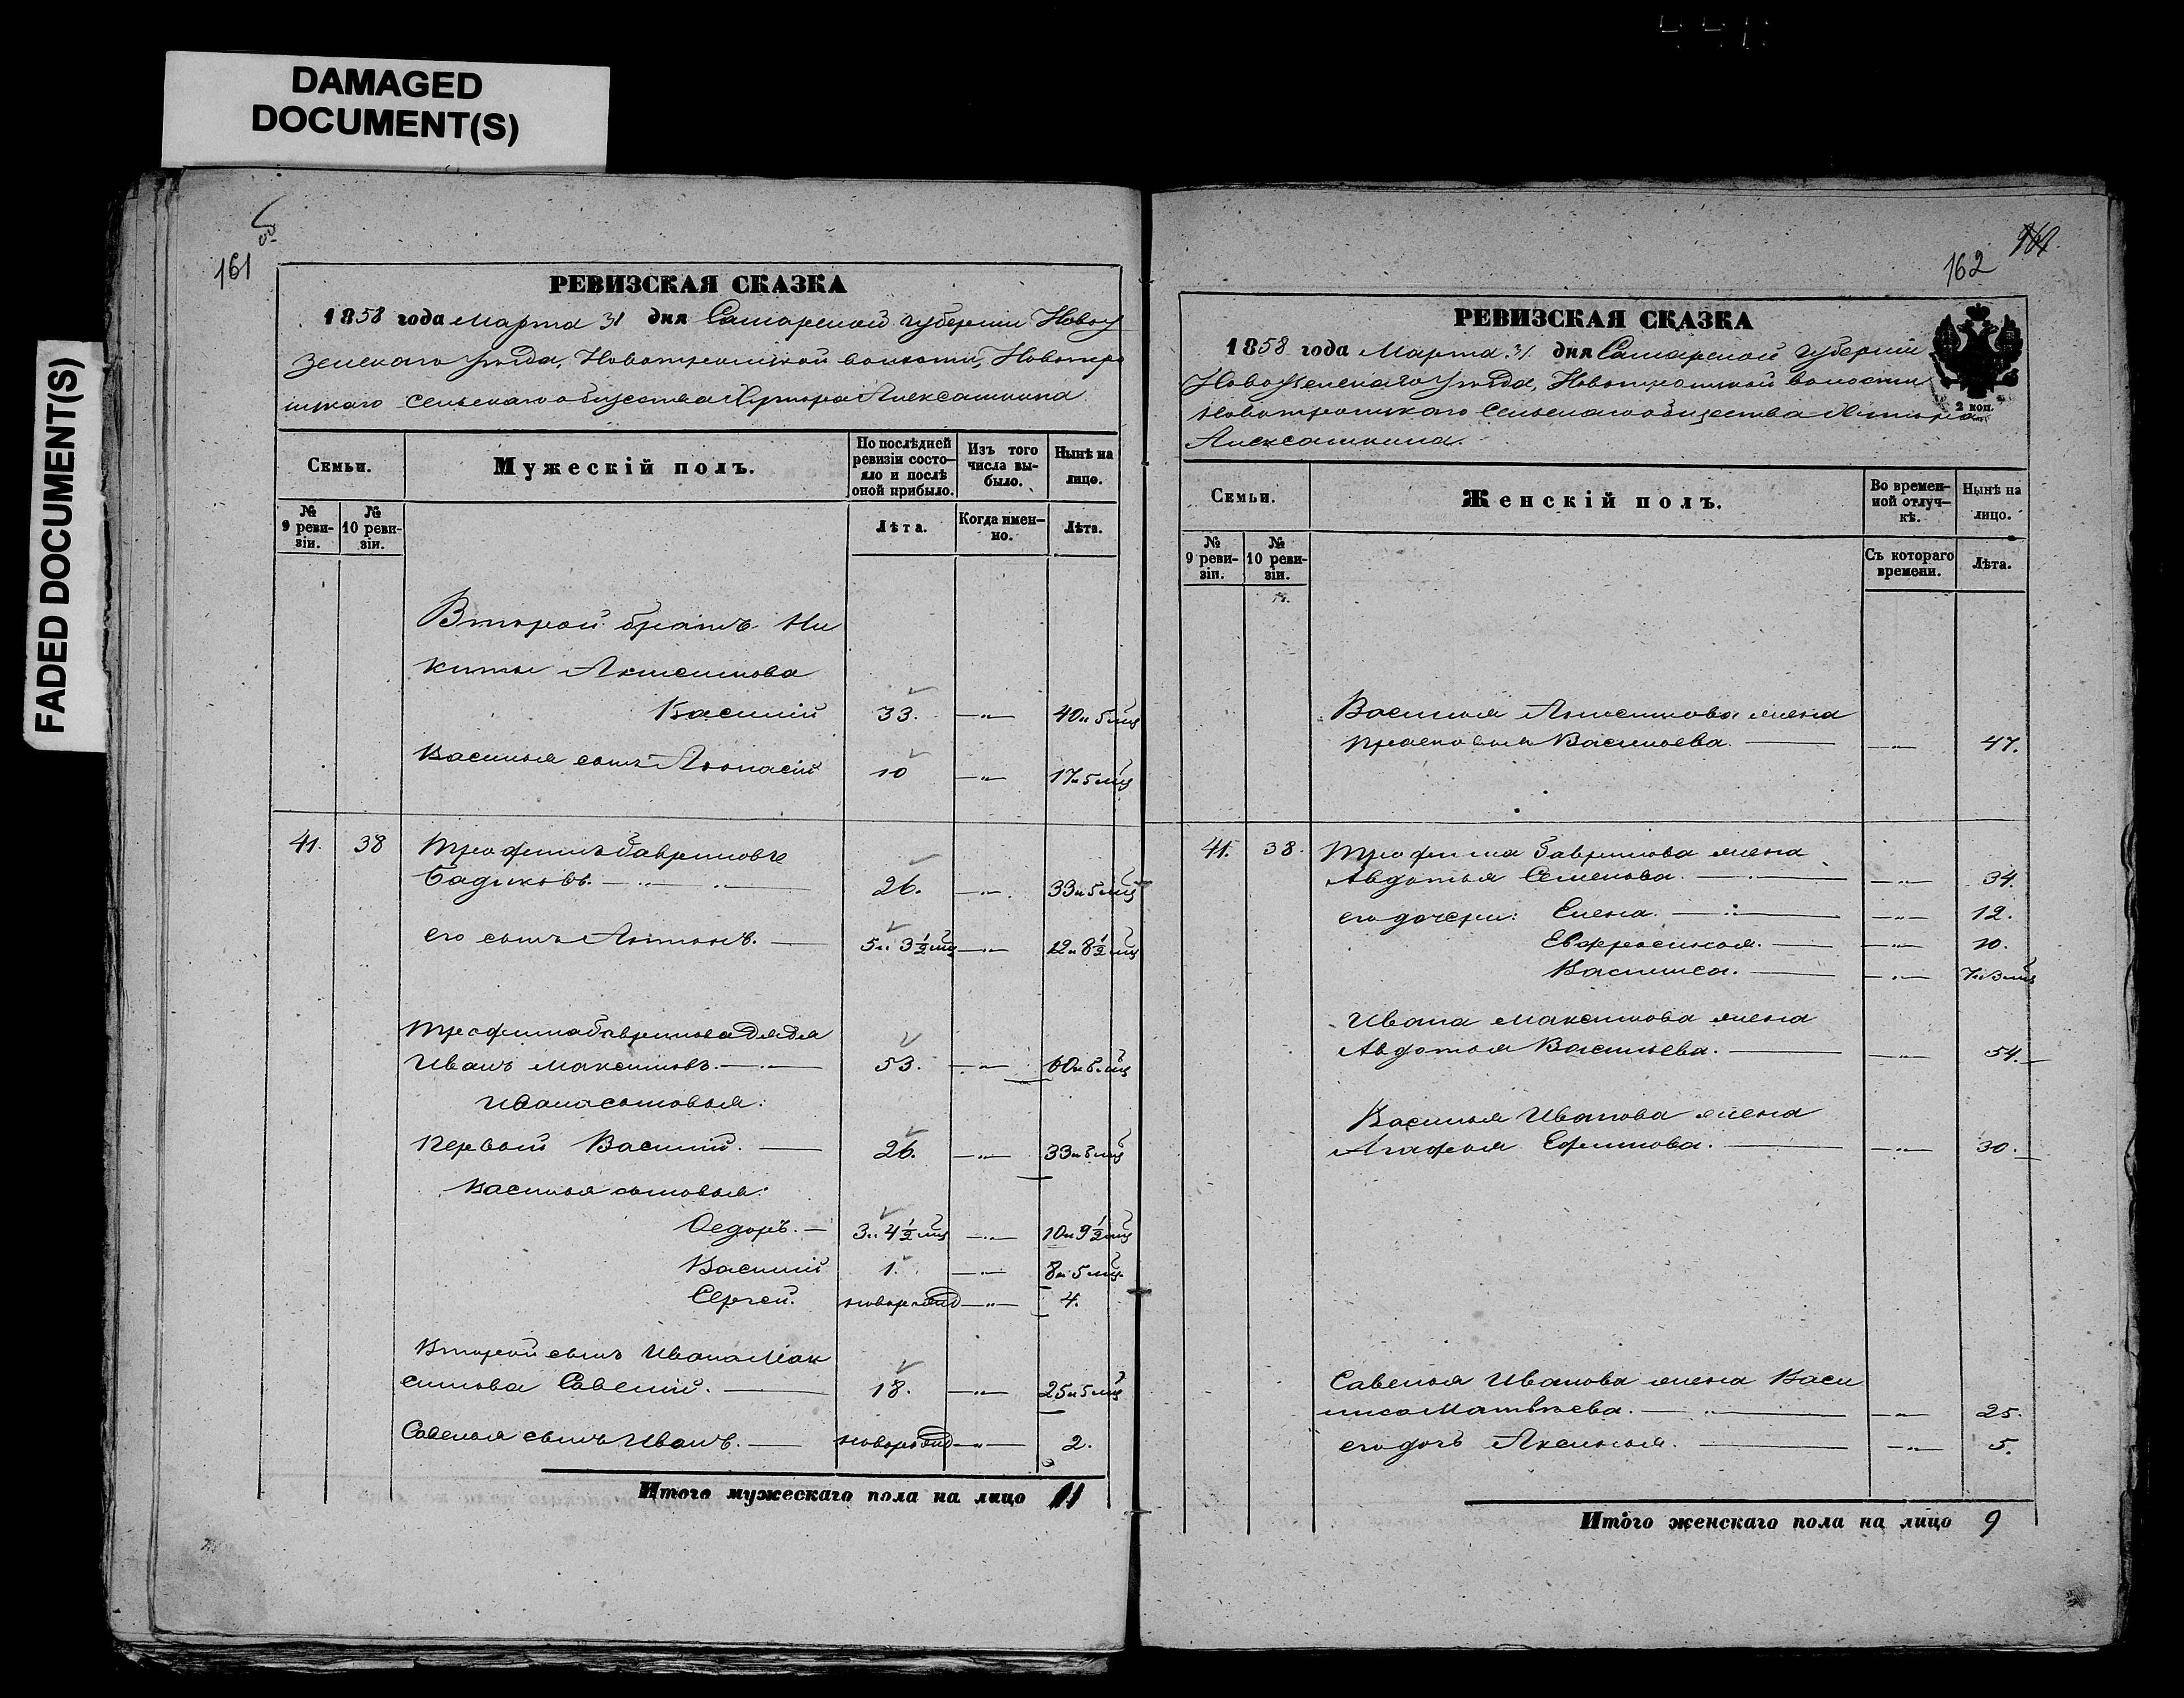 DAMAGED
DOCUMENT(S)
FADED DOCUMENT(S)
161
РЕВИЗСКАЯ СКАЗКА
1858 года Марта 31 дня Самарской губернии Новоу
зенскаго уѣзда, Новотроицкой волости, Новотро
ицкаго сельскаго общества Хутора Алексашкина
Семьи.
Мужескій полъ.
По послѣдней ревизіи состо-яло и послѣ оной прибыло.
Изъ того числа вы-было.
Нынѣ на лицо.
№ 9 реви-зіи.
№ 10 реви-зіи.
Лѣта.
Когда имен-но.
Лѣта.
Второй братъ Ни
киты Анисимова
Василій 33. —"— 40 и 5 мцъ
Василья сынъ Афонасій 10 —"— 17 и 5 мцъ
41. 38 Трофимъ Гавриловъ
26. —"— 33 и 5 мцъ
его сынъ Антонъ. — 5 и 3½ мцъ —"— 12 и 8½ мцъ
Трофима Гаврилова дядя
Иванъ Максимовъ. — 53. —"— 60 и 5 мцъ
Ивана сыновья:
Первый Василій. — 26. —"— 33 и 5 мцъ
Василья сыновья:
Ѳедоръ. — 3 и 4½ мцъ —"— 10 и 9½ мцъ
Василій 1. —"— 8 и 5 мцъ
Сергей. новорожд —"— 4.
Второй сынъ Ивана Мак
симова Савелій. — 18. —"— 25 и 5 мцъ
Савелья сынъ Иванъ. — новорожд —"— 2.
Итого мужескаго пола на лицо 11
162
РЕВИЗСКАЯ СКАЗКА
1858 года Марта 31 дня Самарской губерніи
Новоузенскаго уѣзда, Новотроицкой волости
Новотроицкаго сельскаго общества Хутора
Алексашкина.
2 коп.
Семьи.
Женскій полъ.
Во времен-ной отлуч-кѣ.
Нынѣ на лицо.
№ 9 реви-зіи.
№ 10 реви-зіи.
Съ котораго времени.
Лѣта.
Василья Анисимова жена
Прасковья Васильева. — —"— 47.
41. 38. Трофима Гаврилова жена
Авдотья Семенова. — —"— 34.
его дочери: Елена. — —"— 12.
Евфросинья. — —"— 10.
Василиса. — —"— 7 и 3 мцъ
Ивана Максимова жена
Авдотья Васильева. — —"— 54.
Василья Иванова жена
Агафья Ефимова. — —"— 30.
Савелья Иванова жена Васи
лиса Матвѣева. — —"— 25.
его дочь Аксинья. — —"— 5.
Итого женскаго пола на лицо 9